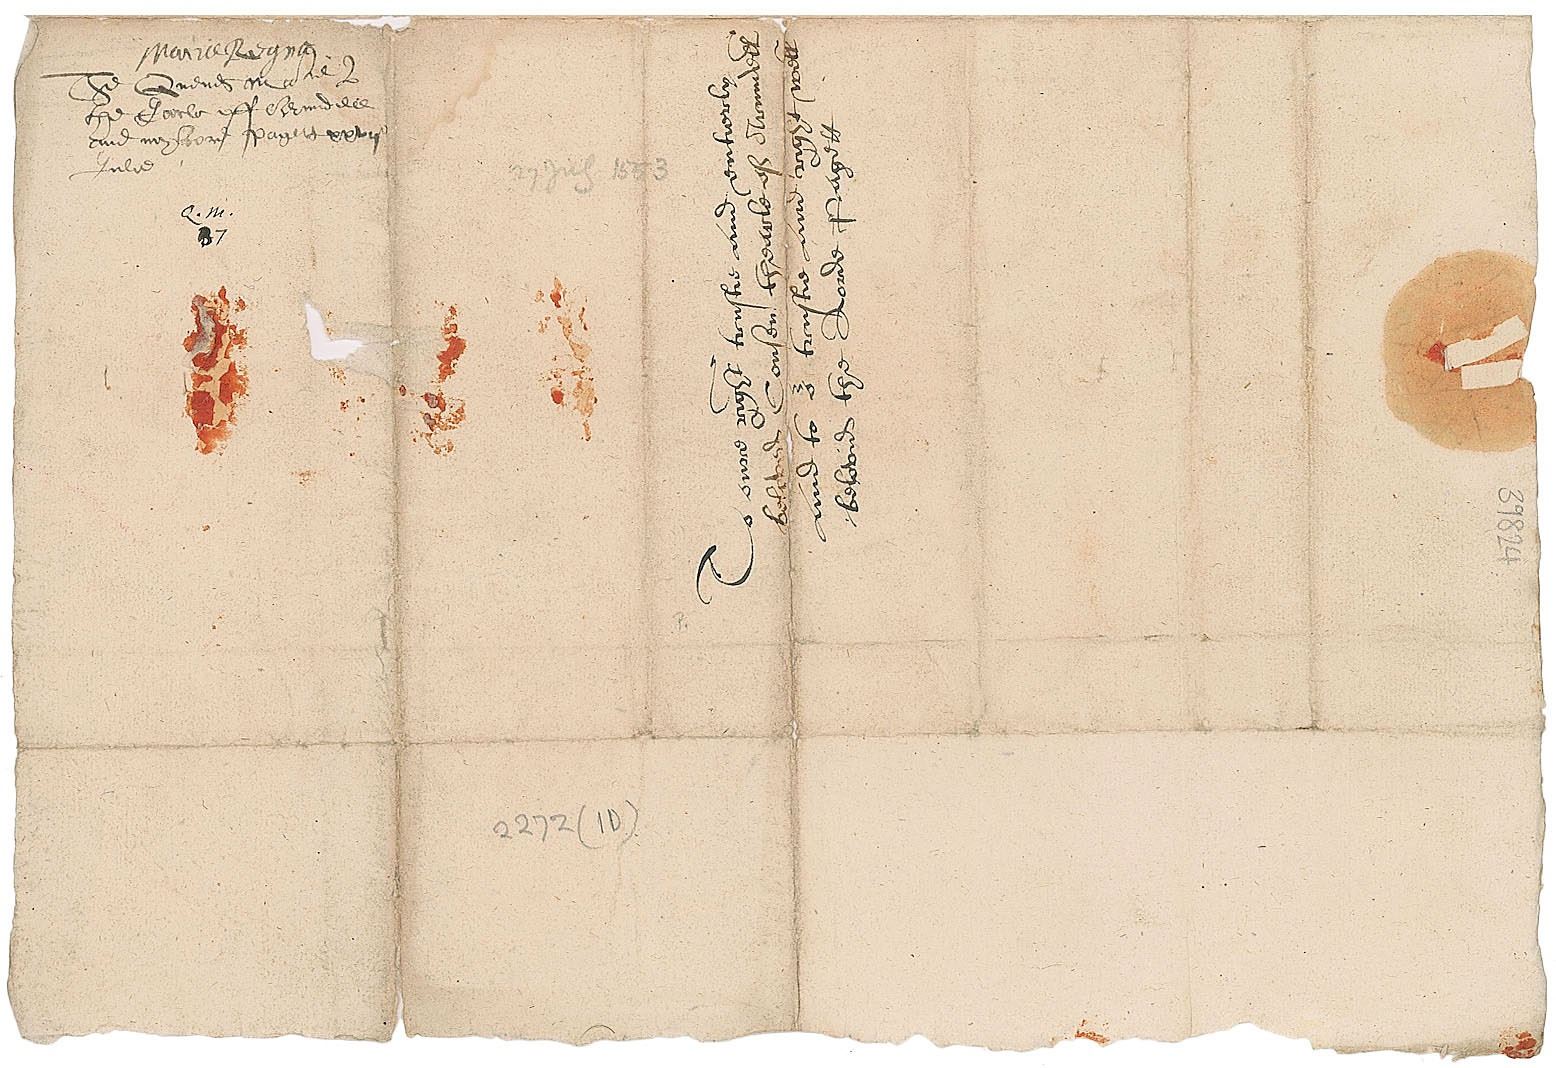 Marie Regina
The Quenes Ma
the Earle off Arundell
and my lord pagett xxvij
Julie
Q. M.
27
27 July 1553
To our right trustie and entierly
beloved Cousen therle of Arundell
And to o trustie and right well
beloved the Lorde Pagett
P.
39824
2272 (10)